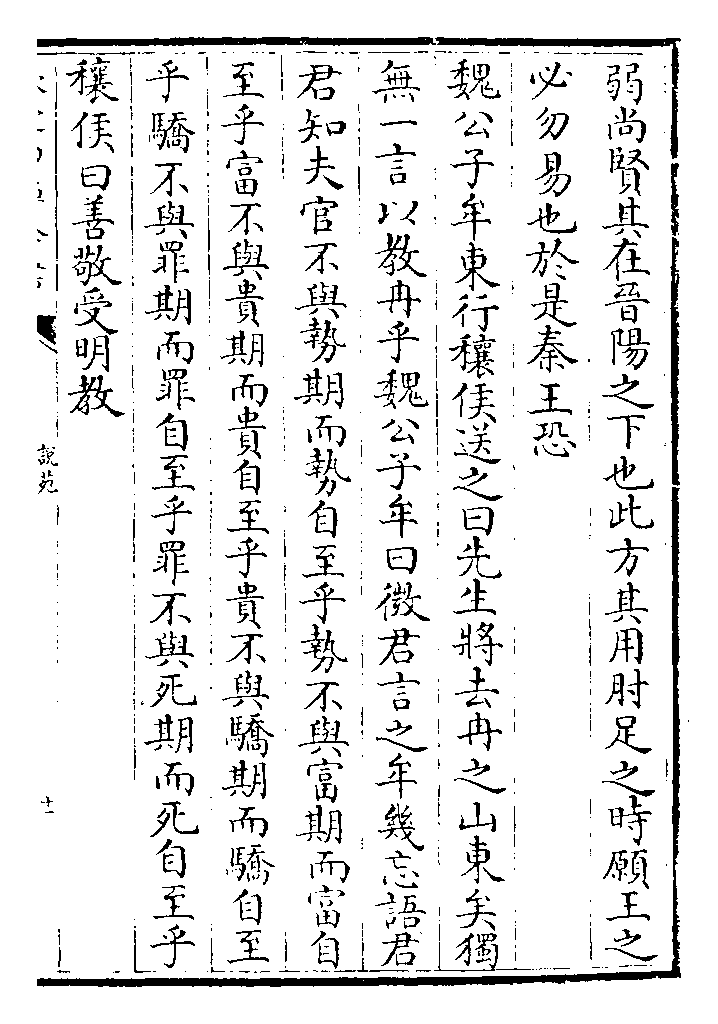 弱尚賢其在晉陽之下也此方其用肘足之時願王之
必勿易也於是秦王恐
魏公子牟東行穰侯送之曰先生將去冉之山東矣獨
無一言以教冉乎魏公子牟曰微君言之牟幾忘語君
君知夫官不與勢期而勢自至乎勢不與富期而富自
至乎富不與貴期而貴自至乎貴不與驕期而驕自至
乎驕不與罪期而罪自至乎罪不與死期而死自至乎
穰侯曰善敬受明教
說苑
十一